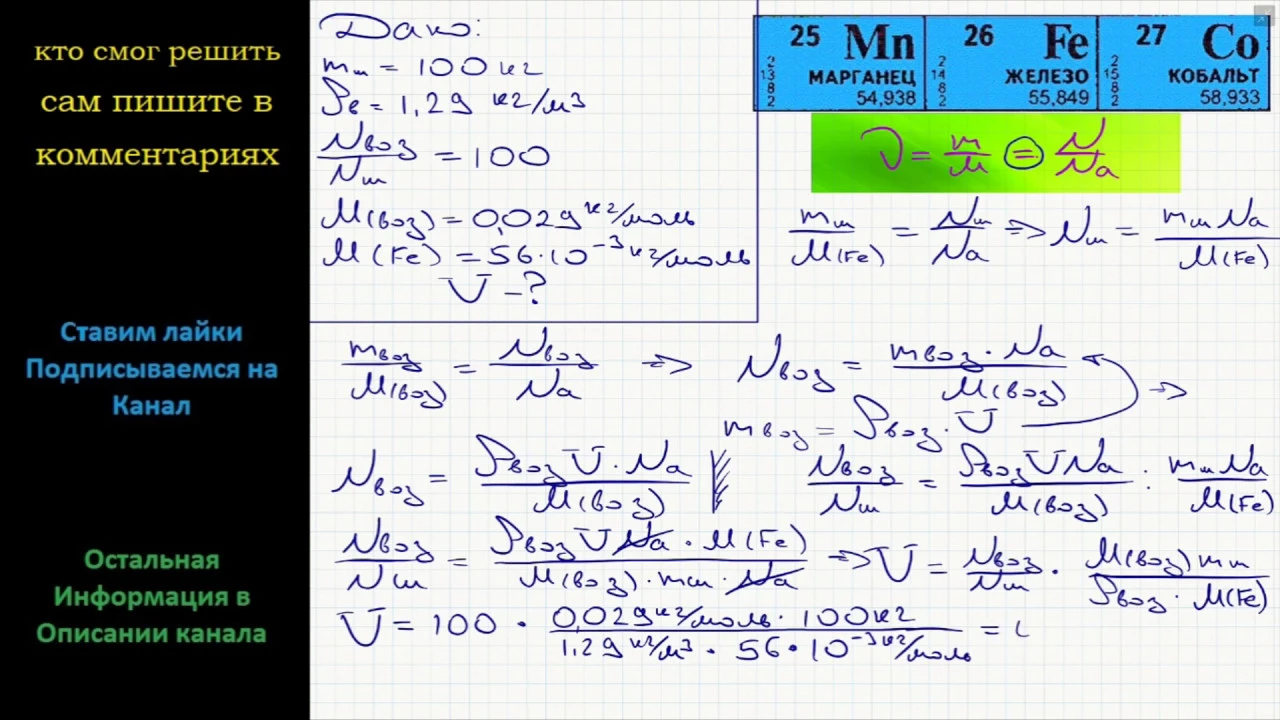 кто смог решить
сам пишите в
комментариях
Ставим лайки
Подписываемся на
Канал
Остальная
Информация в
Описании канала
Дано:
mш = 100 кг
ρв = 1,29 кг/м³
Nвоз/Nш = 100
M(воз) = 0,029 кг/моль
M(Fe) = 56·10⁻³ кг/моль
V - ?
25 Mn
МАРГАНЕЦ
54,938
2 13 8 2
26 Fe
ЖЕЛЕЗО
55,849
2 14 8 2
27 Co
КОБАЛЬТ
58,933
2 15 8 2
ν = m/M = N/Na
mш/M(Fe) = Nш/Na => Nш = mш Na/M(Fe)
mвоз/M(воз) = Nвоз/Na => Nвоз = mвоз · Na/M(воз) =>
mвоз = ρвоз · V
Nвоз = ρвоз V · Na/M(воз)
Nвоз/Nш = ρвоз V Na/M(воз) : mш Na/M(Fe)
Nвоз/Nш = ρвоз V Na · M(Fe)/M(воз) · mш · Na => V = Nвоз/Nш · M(воз) mш/ρвоз · M(Fe)
V = 100 · 0,029 кг/моль · 100 кг/1,29 кг/м³ · 56·10⁻³ кг/моль =